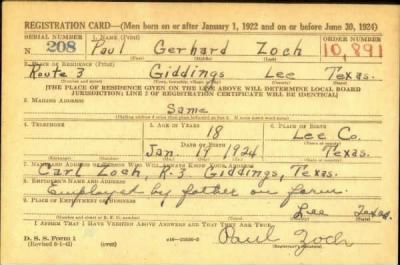 REGISTRATION CARD—(Men born on or after January 1, 1922 and on or before June 30, 1924)
SERIAL NUMBER 1. NAME (Print) ORDER NUMBER
N 208 Paul Gerhard Zoch 10,891
(First) (Middle) (Last)
2. PLACE OF RESIDENCE (Print)
Route 3 Giddings Lee Texas.
(Number and street) (Town, township, village, or city) (County) (State)
[THE PLACE OF RESIDENCE GIVEN ON THE LINE ABOVE WILL DETERMINE LOCAL BOARD
JURISDICTION; LINE 2 OF REGISTRATION CERTIFICATE WILL BE IDENTICAL]
3. MAILING ADDRESS
Same
[Mailing address if other than place indicated on line 2. If same insert word same]
4. TELEPHONE 5. AGE IN YEARS 6. PLACE OF BIRTH
18 Lee Co.
DATE OF BIRTH (Town or county)
Jan. 19 1924 Texas.
(Exchange) (Number) (Mo.) (Day) (Yr.) (State or country)
7. NAME AND ADDRESS OF PERSON WHO WILL ALWAYS KNOW YOUR ADDRESS
Carl Zoch, R.3 Giddings, Texas.
8. EMPLOYER'S NAME AND ADDRESS
Employed by father on farm.
9. PLACE OF EMPLOYMENT OR BUSINESS
Lee Texas.
(Number and street or R. F. D. number) (Town) (County) (State)
I AFFIRM THAT I HAVE VERIFIED ABOVE ANSWERS AND THAT THEY ARE TRUE.
D. S. S. Form 1
(Revised 6-1-42) (over) Paul Zoch
(Registrant's signature)